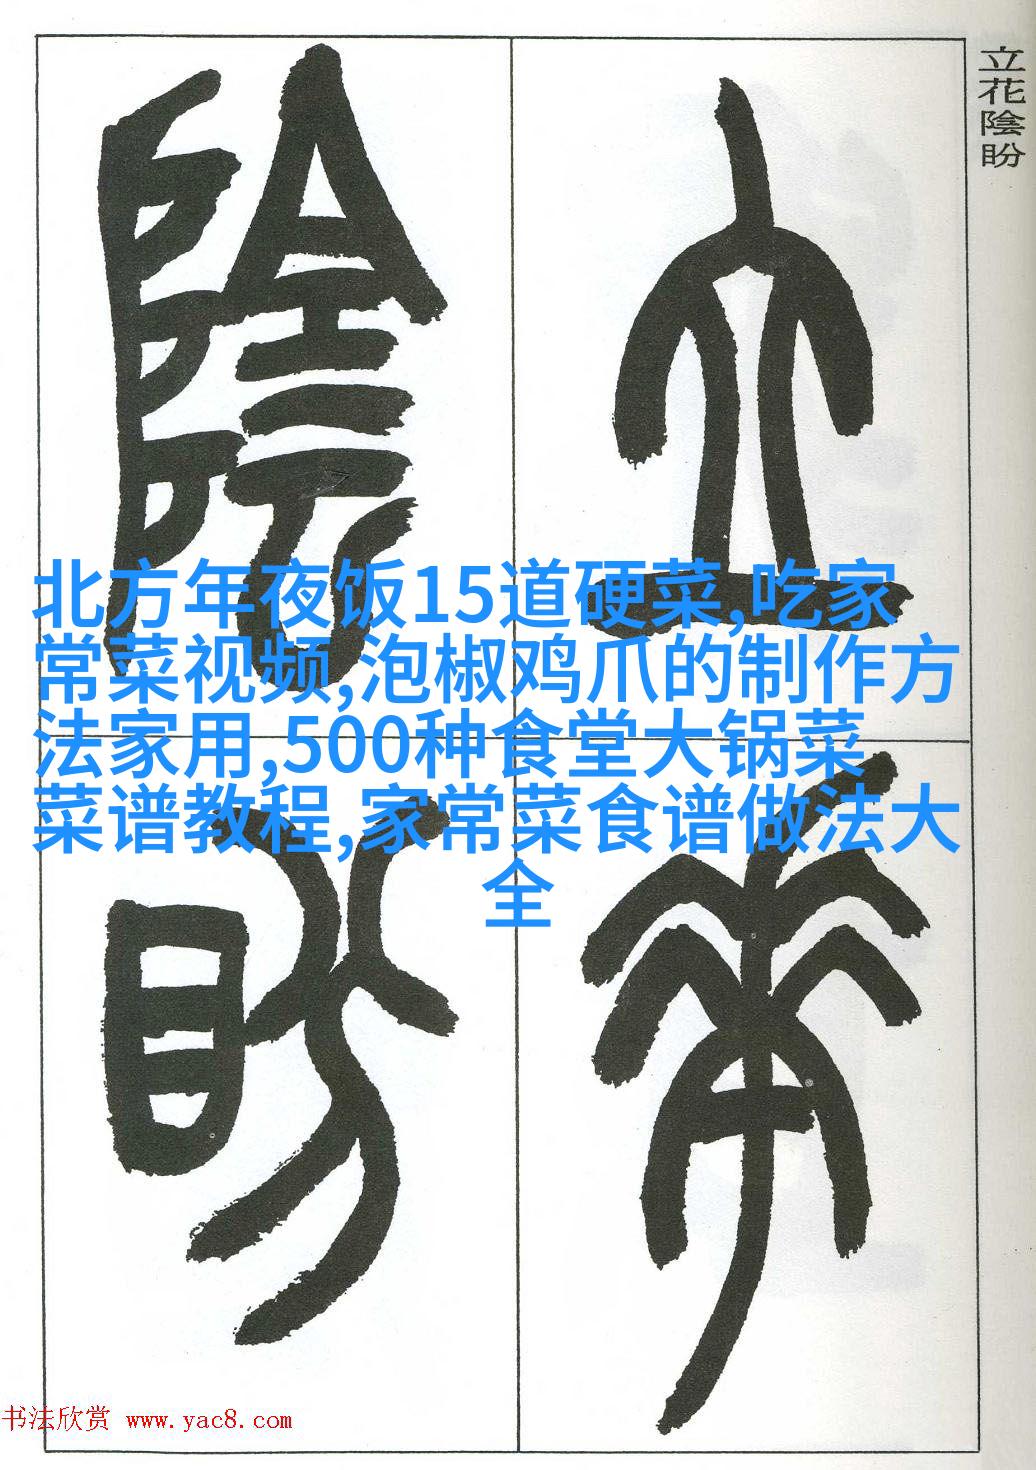 立花陰盼
立
花
陰
盼
北方年夜饭15道硬菜,吃家
常菜视频,泡椒鸡爪的制作方
法家用,500种食堂大锅菜
菜谱教程,家常菜食谱做法大
全
书法欣赏 www.yac8.com